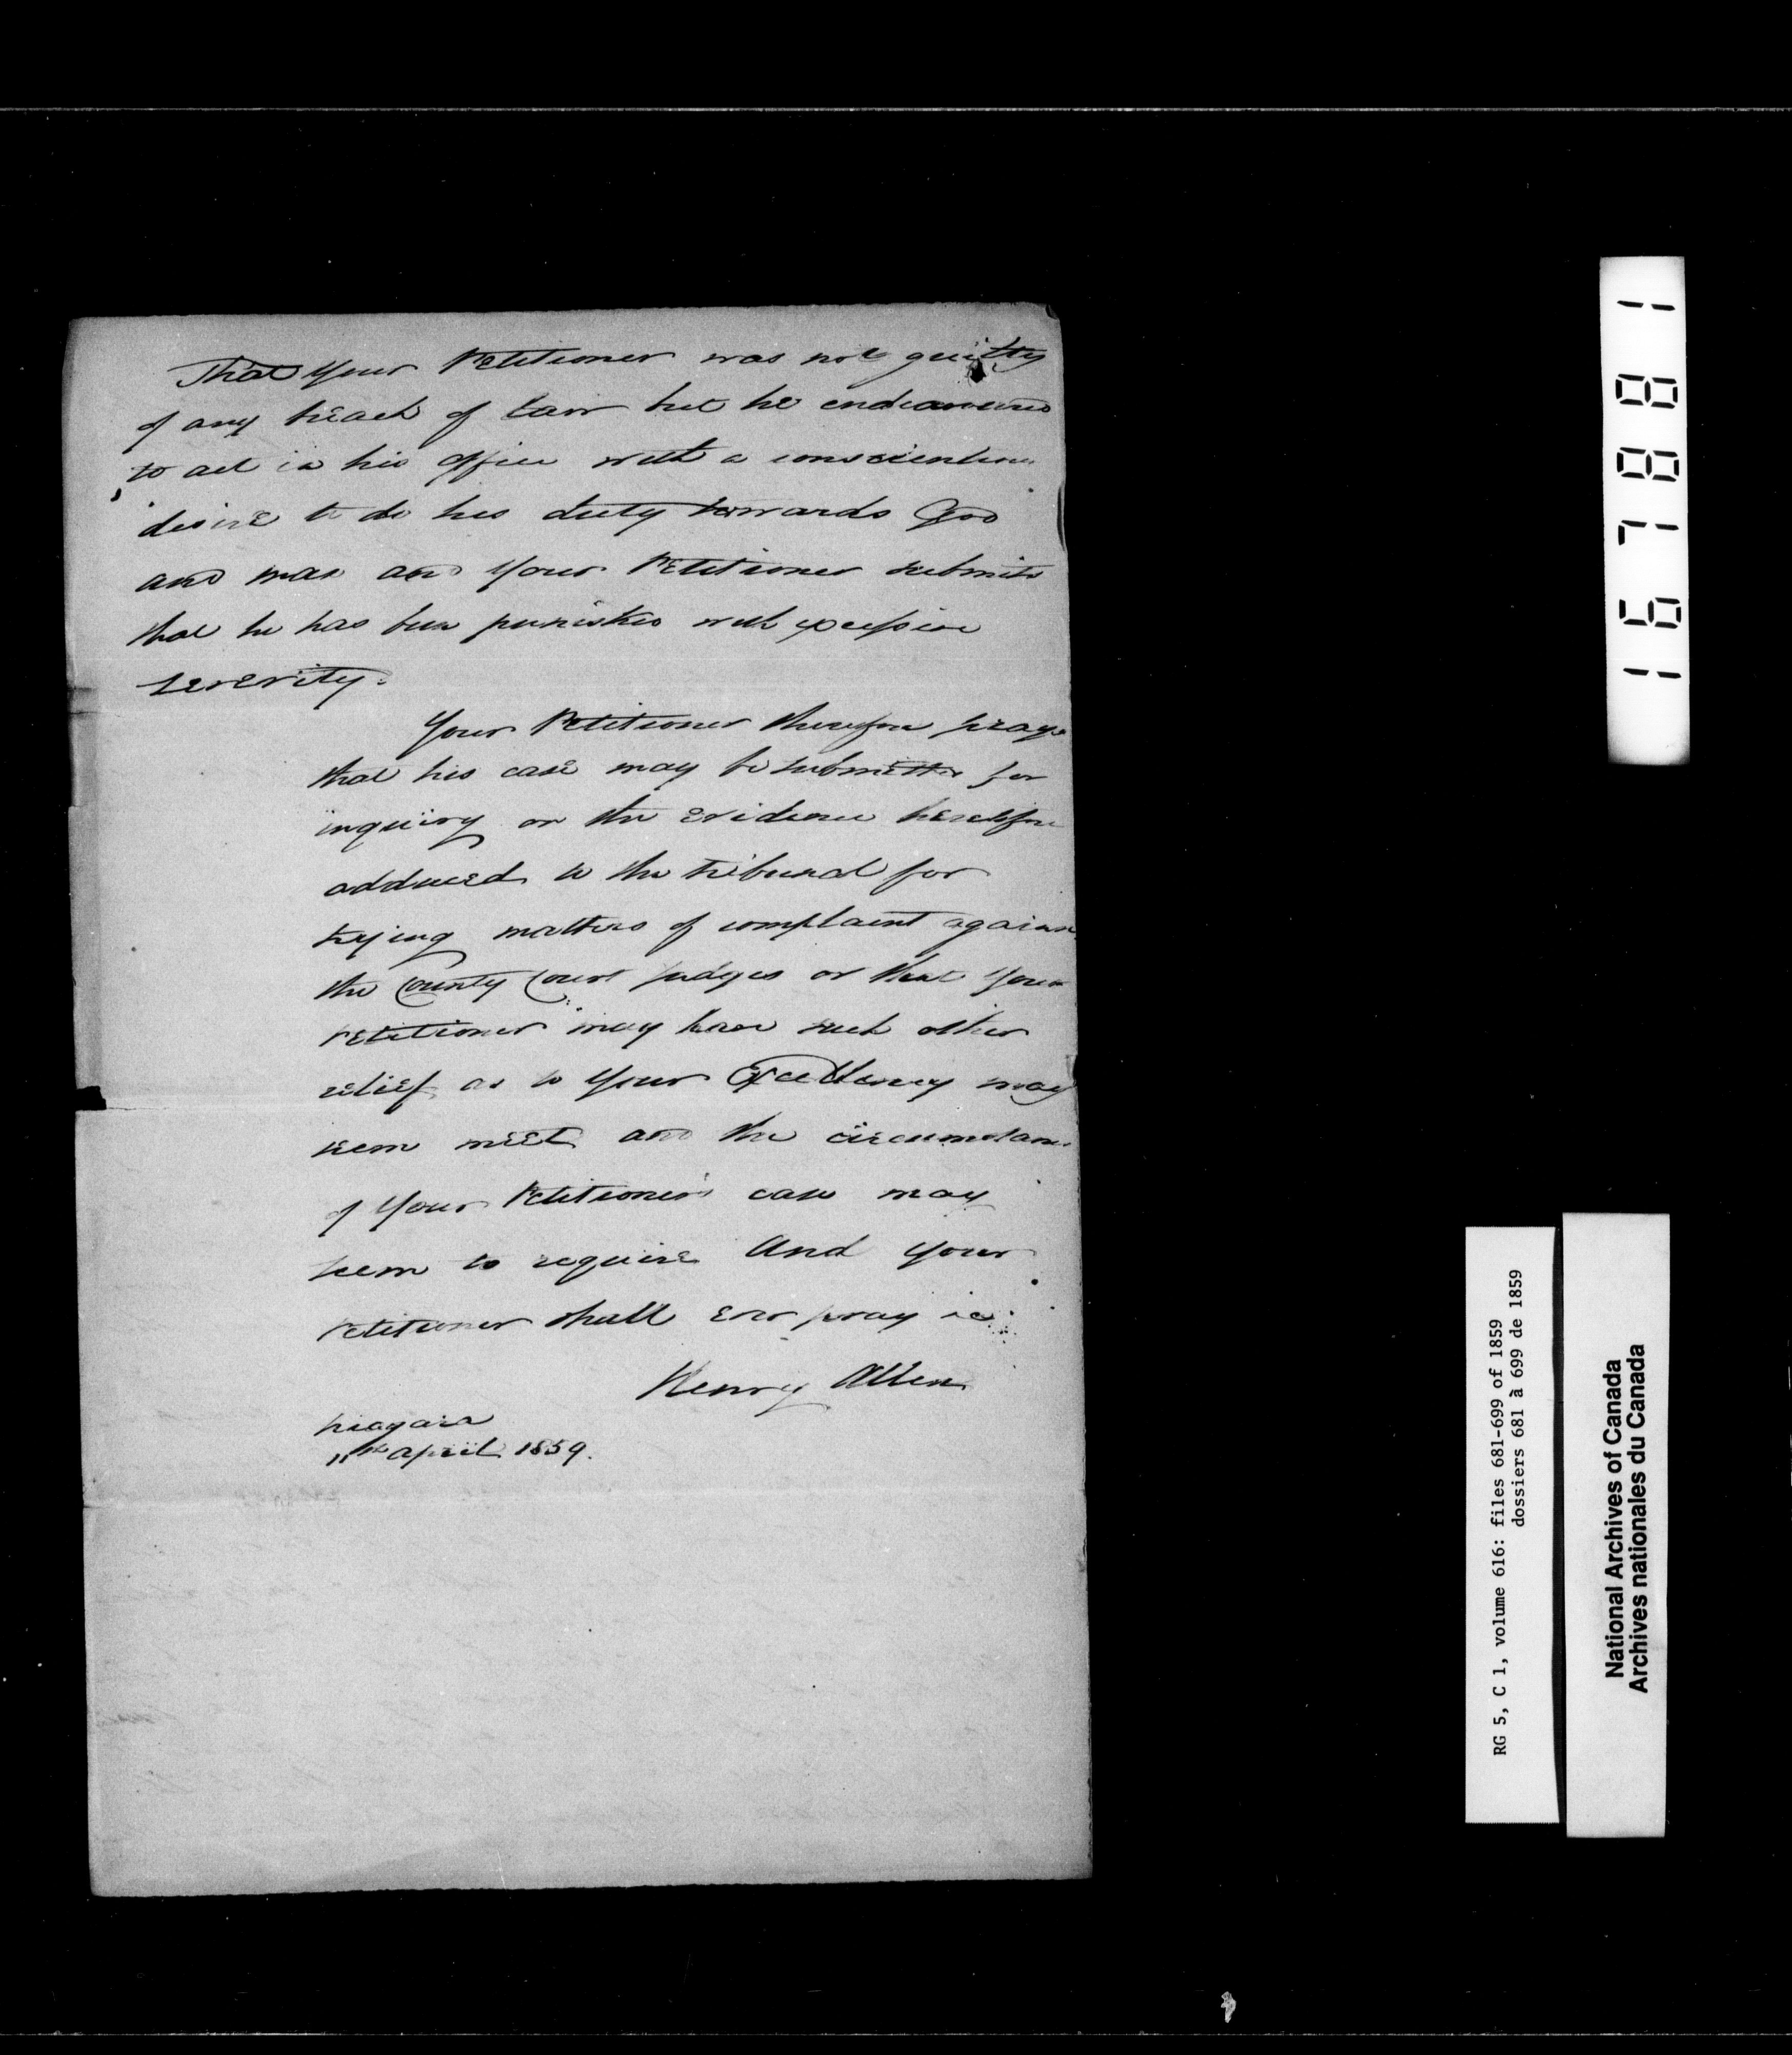 That Your Petitioner was not guilty
of any breach of Law but he endeavoured
to act in his office with a conscientious
desire to do his duty towards God
and man and Your Petitioner submits
that he has been punished with excessive
severity.
Your Petitioner therefore prays
that his case may be submitted for
inquiry on the evidence heretofore
adduced to the tribunal for
trying matters of complaint against
the County Court Judges or that Your
Petitioner may have such other
relief as to Your Excellency may
seem meet and the circumstances
of Your Petitioner's case may
seem to require And Your
Petitioner shall Ever pray &c
Henry Allen
Niagara
April 1859.
167881
RG 5, C 1, volume 616: files 681-699 of 1859
dossiers 681 à 699 de 1859
National Archives of Canada
Archives nationales du Canada